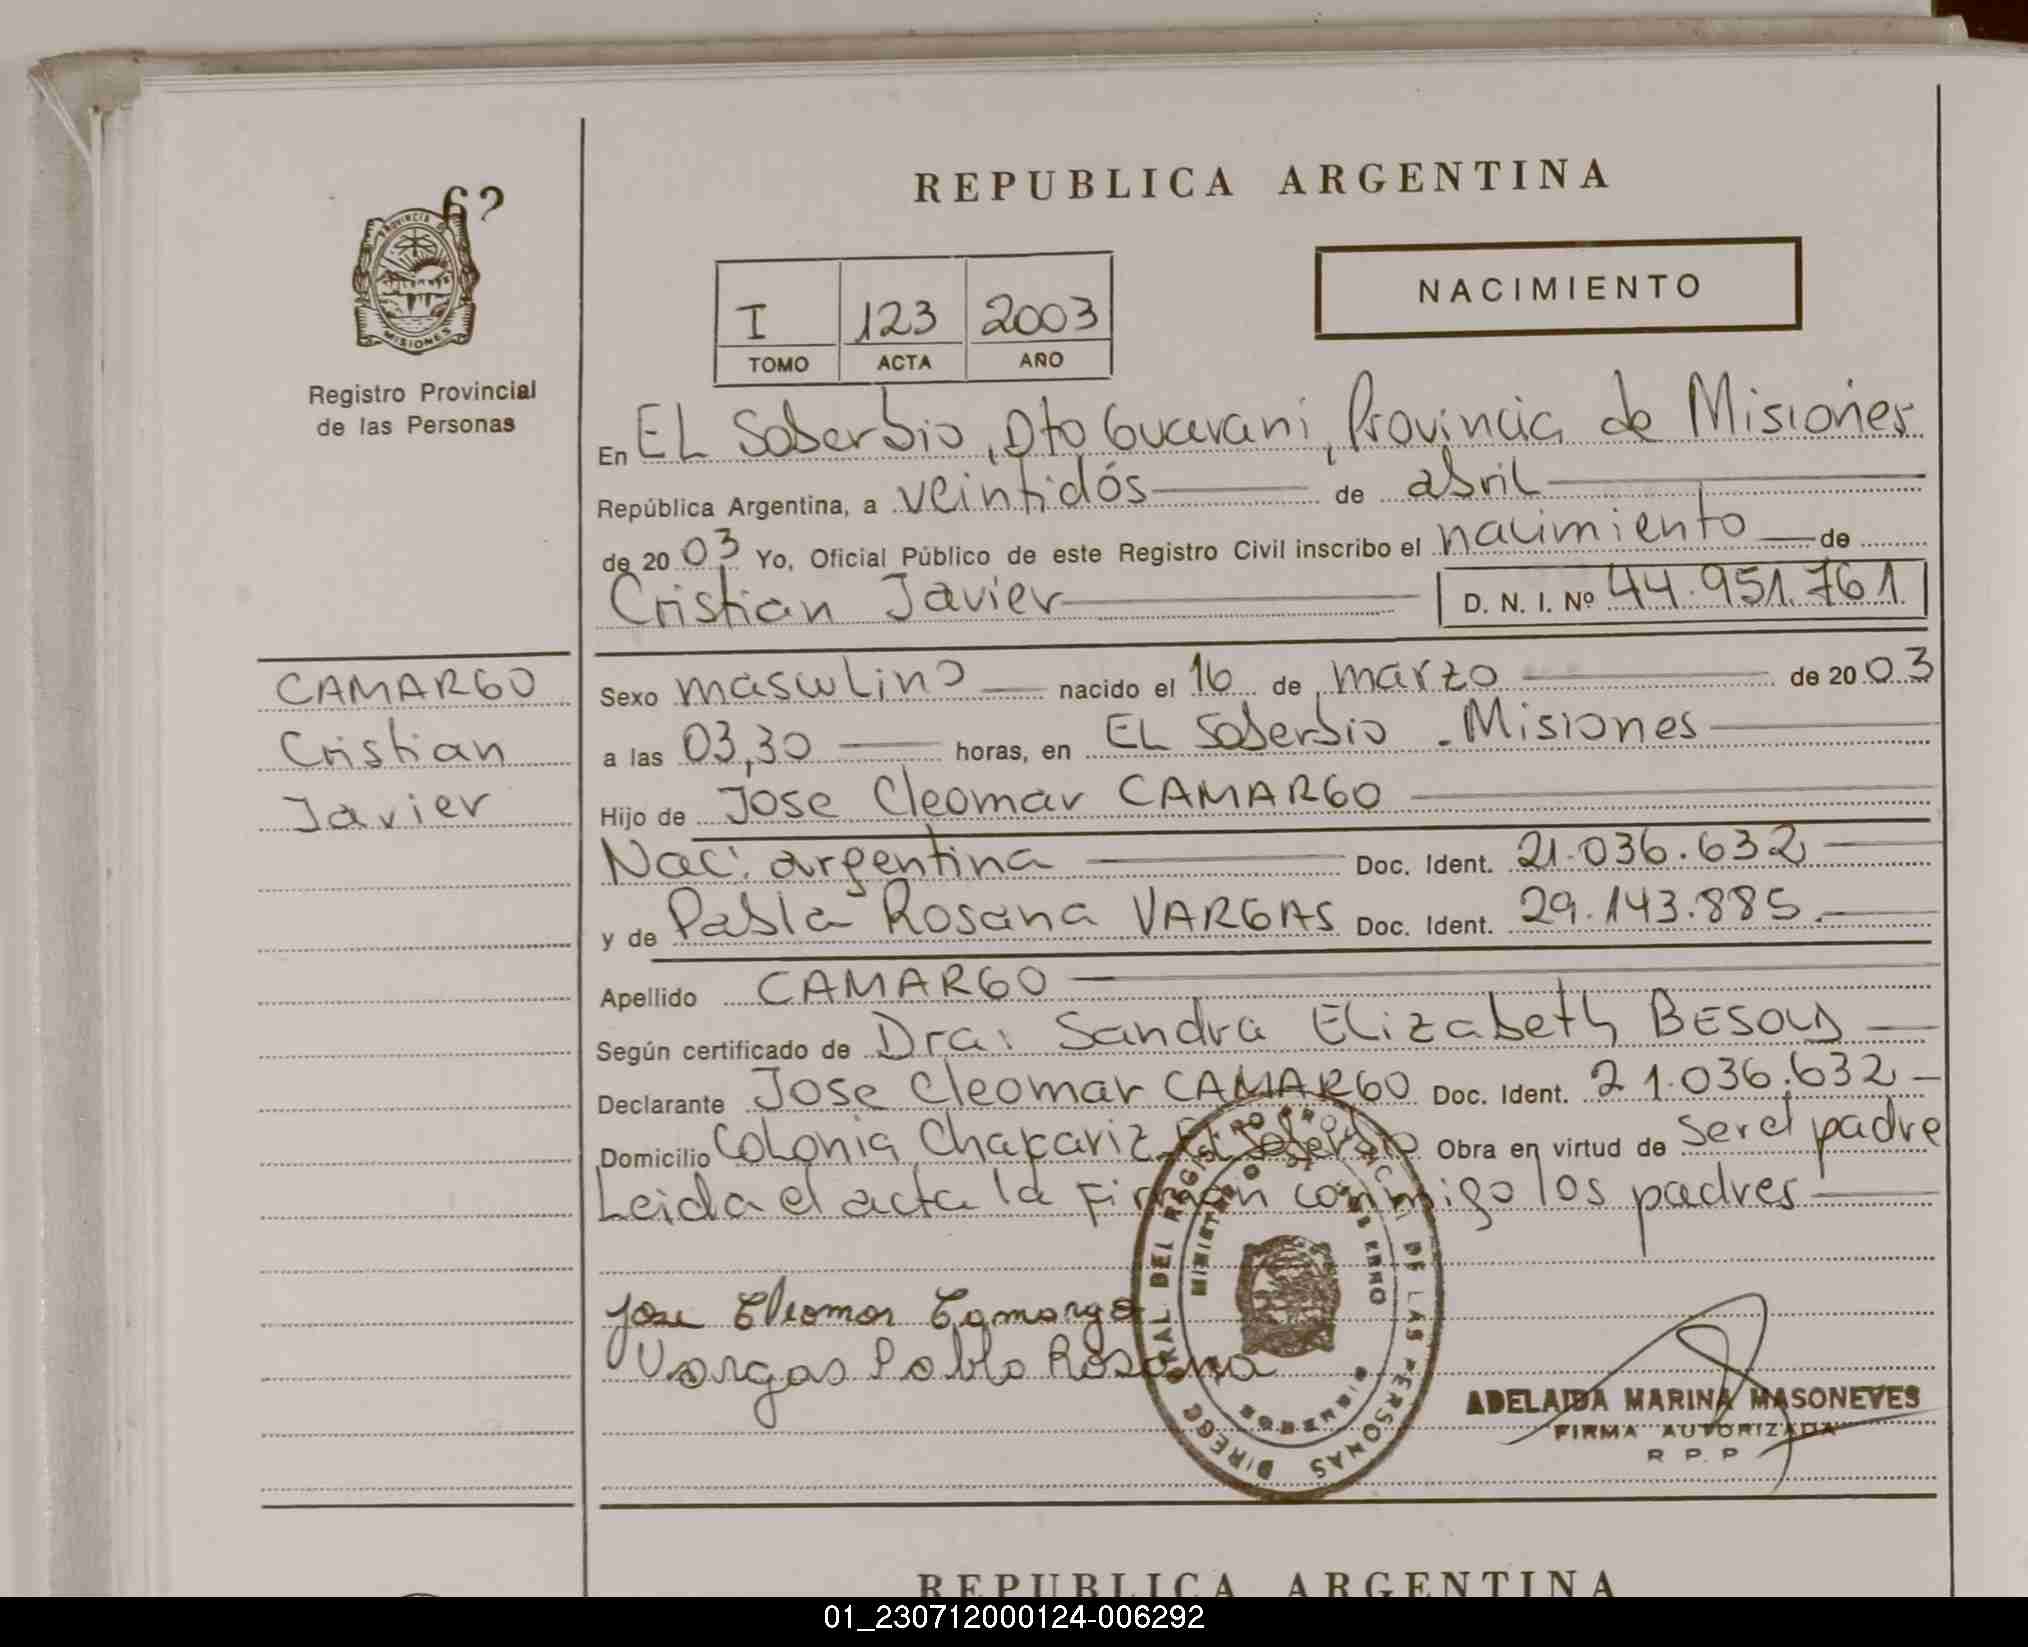 62
PROVINCIA DE
MISIONES
Registro Provincial
de las Personas
REPUBLICA ARGENTINA
NACIMIENTO
I 123 2003
TOMO ACTA AÑO
En EL Soberbio, Dto Guarani, Provincia de Misiones
República Argentina, a veintidós de abril
de 2003 Yo, Oficial Público de este Registro Civil inscribo el nacimiento de
Cristian Javier D. N. I. Nº 44.951.761
CAMARGO
Cristian
Javier
Sexo masculino nacido el 16 de marzo de 2003
a las 03,30 horas, en EL Soberbio - Misiones
Hijo de Jose Cleomar CAMARGO
Nac: argentina Doc. Ident. 21.036.632
y de Pabla Rosana VARGAS Doc. Ident. 29.143.885
Apellido CAMARGO
Según certificado de Dra: Sandra Elizabeth
Declarante Jose Cleomar CAMARGO Doc. Ident. 21.036.632
Domicilio Colonia Chafariz El Soberbio Obra en virtud de ser el padre
Leida el acta la firman conmigo los padres
Jose Cleomar Camargo
Vargas Pabla Rosana
DIRECC GRAL DEL REGISTRO PROVINCIAL DE LAS PERSONAS
MINISTERIO DE GOBIERNO
MISIONES
ADELAIDA MARINA MASONEVES
FIRMA AUTORIZADA
R P. P
REPUBLICA ARGENTINA
01_230712000124-006292